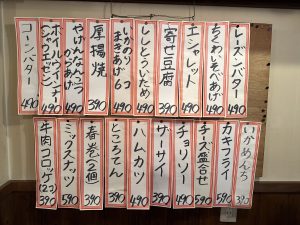 レーズンバター 490
ちくわいそべあげ 490
エシャレット 490
寄せ豆腐 390
ししとういため 490
まきあげ 6コ 490
厚揚焼 390
やげんなんこつ
からあげ 490
ボールウインナー 490
コーンバター 490
いかめんち 390
カキフライ 590
チーズ盛合せ 590
チョリソー 490
ザーサイ 390
ハムカツ 490
ところてん 390
春巻(2個) 390
ミックスナッツ 590
牛肉コロッケ(2コ) 390